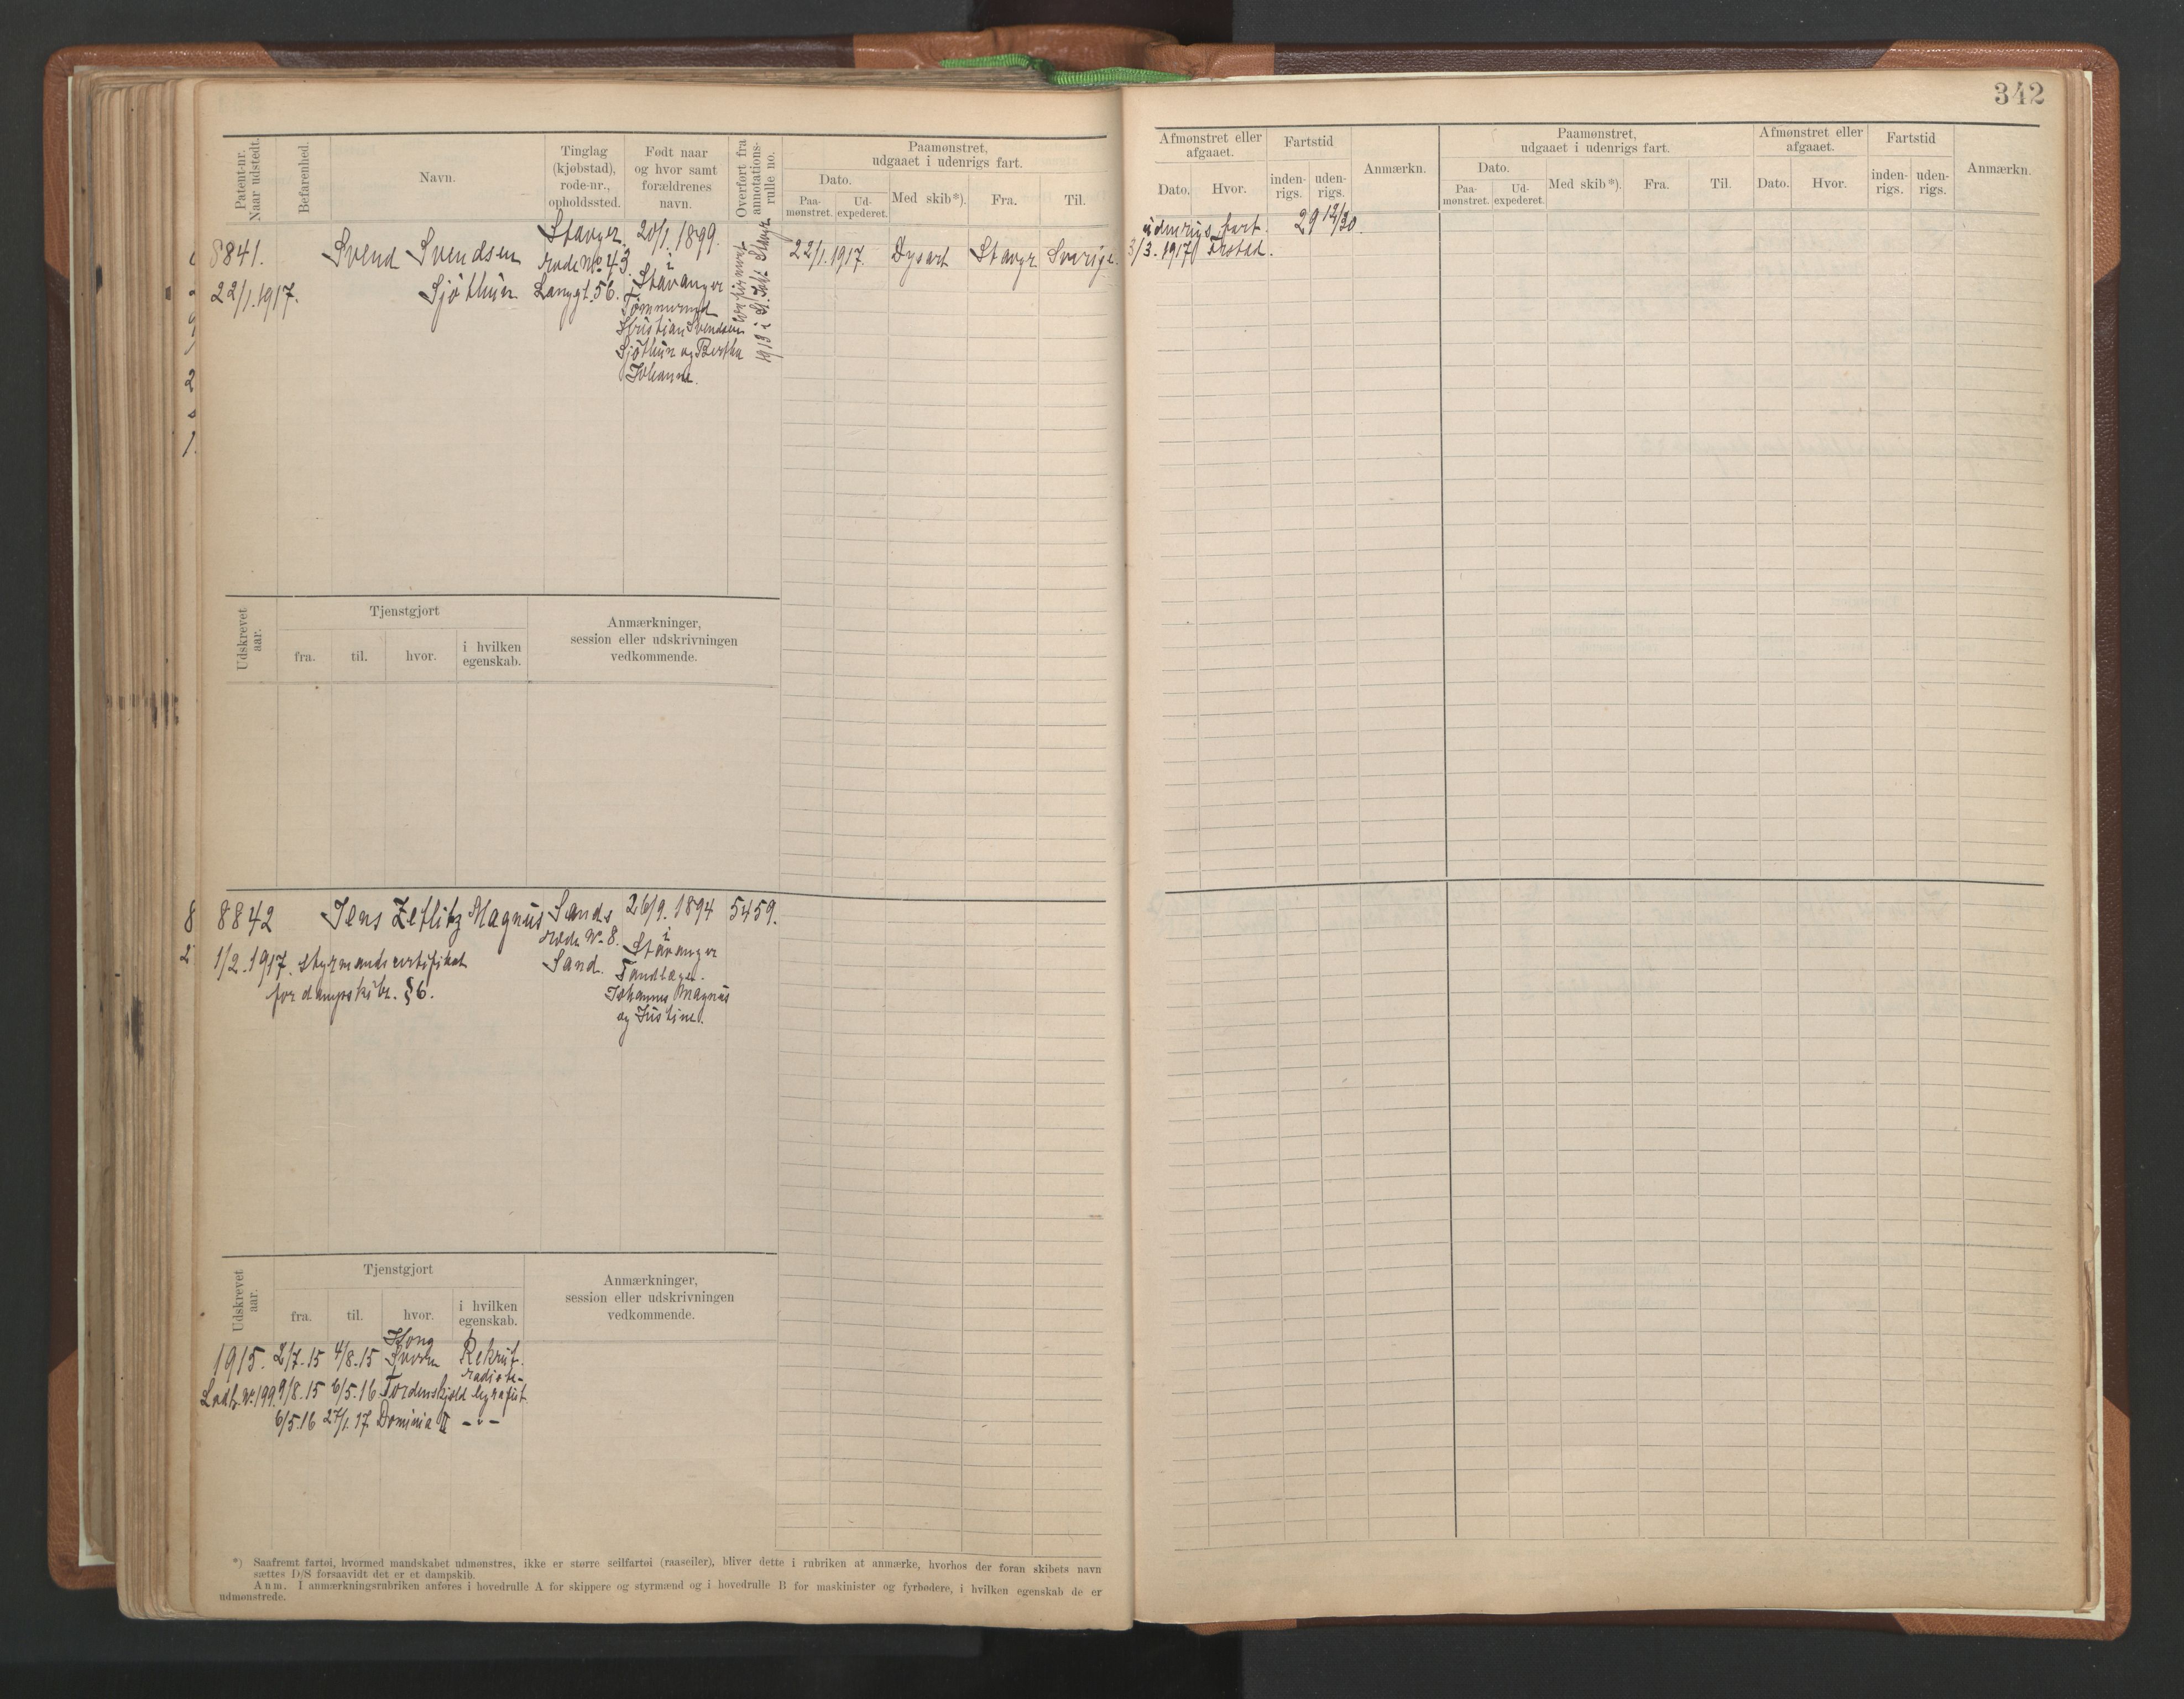 342
Patent-nr. Naar udstedt.
Befarenhed.
Navn.
Tinglag (kjøbstad), rode-nr., opholdssted.
Født naar og hvor samt forældrenes navn.
Overført fra annotations-rulle no.
Paamønstret, udgaaet i udenrigs fart.
Dato.
Paa-mønstret.
Ud-expederet.
Med skib*).
Fra.
Til.
Afmønstret eller afgaaet.
Dato.
Hvor.
Fartstid
inden-rigs.
uden-rigs.
Anmærkn.
Paamønstret, udgaaet i udenrigs fart.
Dato.
Paa-mønstret.
Ud-expederet.
Med skib*).
Fra.
Til.
Afmønstret eller afgaaet.
Dato.
Hvor.
Fartstid
inden-rigs.
uden-rigs.
Anmærkn.
8841.
22/1.1917.
Svend Svendsen
Sjøthun
Stavger.
rode No 43.
Langgt. 56.
20/1.1899.
i
Stavanger
Tømmermd
Kristian Svendsen
Sjøthun og Bertha
Johanne.
1913 i St. Stavgr
22/1.1917.
Dysart
Stavgr
Sverige.
udenrigs fart.
29 12/30.
3/3.1917
Udskrevet aar.
Tjenstgjort
fra.
til.
hvor.
i hvilken egenskab.
Anmærkninger,
session eller udskrivningen
vedkommende.
8842
1/2.1917.
Jens Zetlitz Magnus
styrmandscertifikat
for dampskibe. §6.
Sands
rode No 8.
Sand.
26/9.1894
i
Stavanger
Tandlæge
Johannes Magnus
og Justine.
5459.
Udskrevet aar.
Tjenstgjort
fra.
til.
hvor.
i hvilken egenskab.
Anmærkninger,
session eller udskrivningen
vedkommende.
1915. 2/7.15 4/8.15 Kong Sverre Rekrut.
Lodtr. No 199 9/8.15 6/5.16 Tordenskjold radiotelegrafist
6/5.16 27/1.17. Dominia II - " -
*) Saafremt fartøi, hvormed mandskabet udmønstres, ikke er større seilfartøi (raaseiler), bliver dette i rubriken at anmærke, hvorhos der foran skibets navn
sættes D/S forsaavidt det er et dampskib.
Anm. I anmærkningsrubriken anføres i hovedrulle A for skippere og styrmænd og i hovedrulle B for maskinister og fyrbødere, i hvilken egenskab de er
udmønstrede.